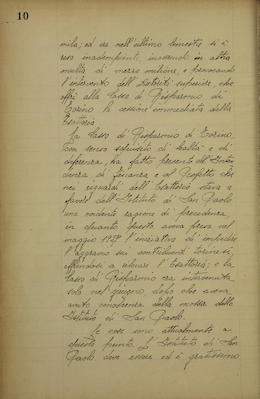 10
mila; ed se nell'ultimo bimestre si è
reso inadempiente, incorrendo in altra
multa di mezzo milione, e provocando
l'intervento dell'Autorità superiore, che
offrì alla Cassa di Risparmio di
Torino la cessione immediata della
Esattoria.
La Cassa di Risparmio di Torino,
con senso squisito di lealtà e di
deferenza, ha fatto presente all'Inten
denza di Finanza e al Prefetto che
nei riguardi dell'Esattoria stava a
favore dell'Istituto di San Paolo
una evidente ragione di precedenza,
in quanto questo aveva preso nel
maggio 1927 l'iniziativa di impedire
l'aggravio sui contribuenti torinesi,
offrendosi a assumere l'Esattoria; e la
Cassa di Risparmio era intervenuta
solo nel giugno, dopo che aveva
avuto conoscenza della mossa dello
Istituto di San Paolo.
Le cose sono attualmente a
questo punto. L'Istituto di San
Paolo deve essere ed è gratissimo